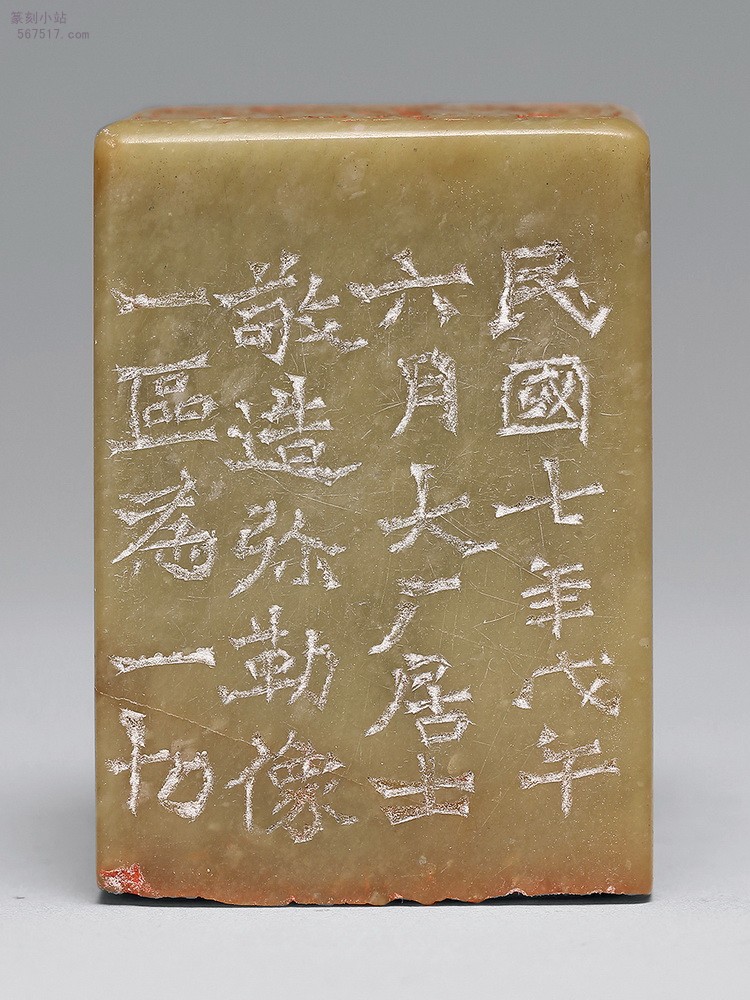 篆刻小站
567517.com
民國七年戊午
六月大厂居士
敬造弥勒像
一區為一切